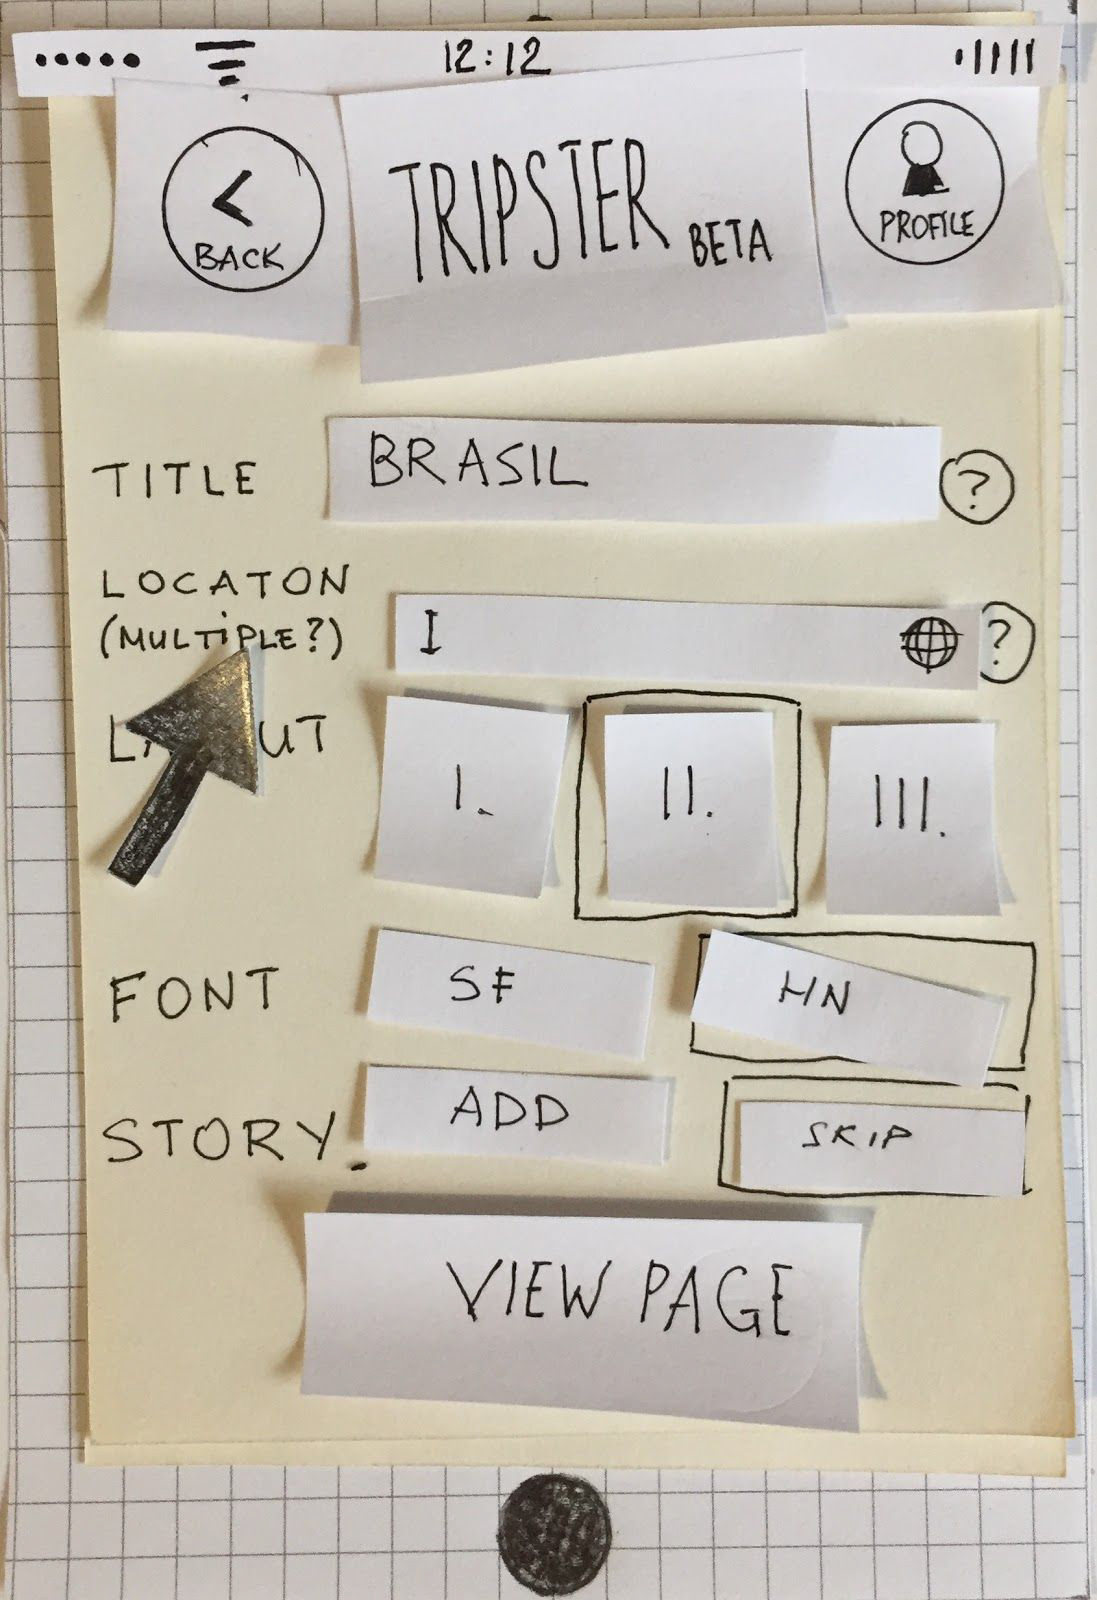 12:12
< BACK
TRIPSTER BETA
PROFILE
TITLE BRASIL ?
LOCATON
(MULTIPLE?) I ?
I. II. III.
FONT SF HN
STORY. ADD SKIP
VIEW PAGE